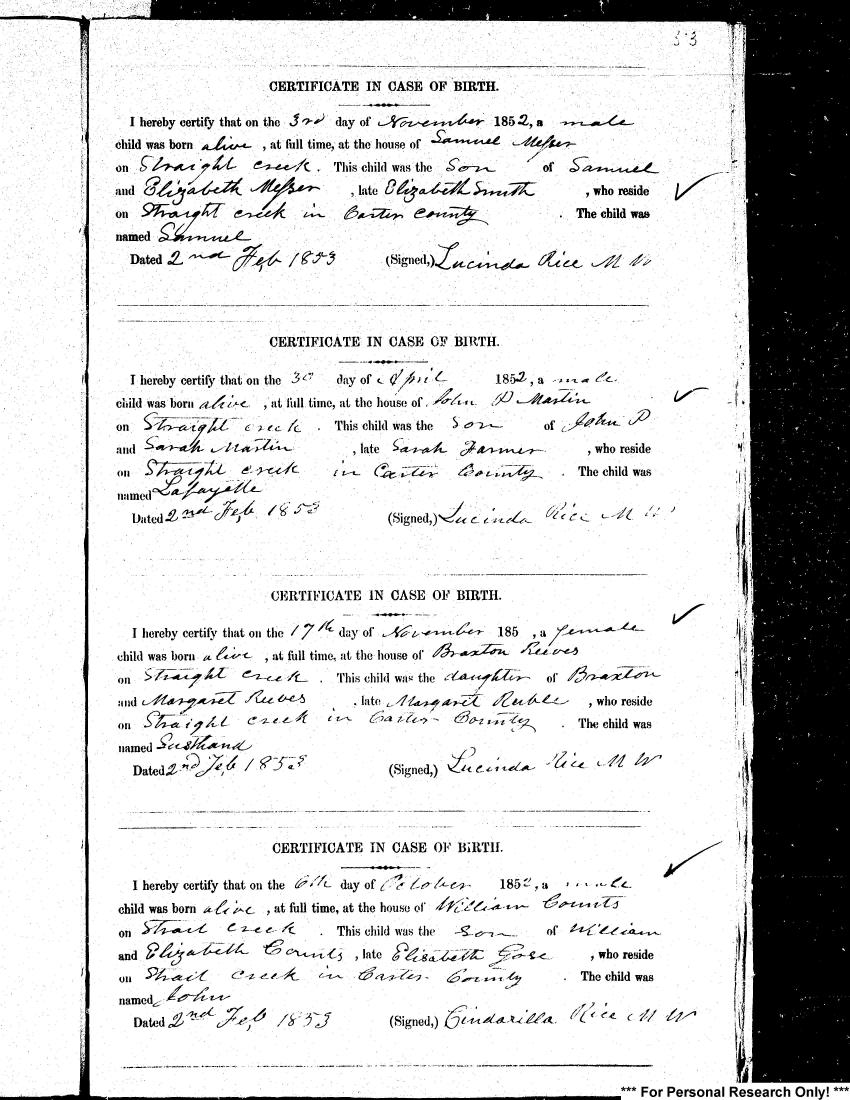 53
CERTIFICATE IN CASE OF BIRTH.
I hereby certify that on the 3rd day of November 1852, a male
child was born alive , at full time, at the house of Samuel Messer
on Straight creek . This child was the Son of Samuel
and Elizabeth Messer , late Elizabeth Smith , who reside
on Straight creek in Carter county . The child was
named Samuel
Dated 2nd Feb 1853 (Signed,) Lucinda Rice M W
CERTIFICATE IN CASE OF BIRTH.
I hereby certify that on the 30 day of April 1852, a male
child was born alive , at full time, at the house of John P Martin
on Straight creek . This child was the Son of John P
and Sarah Martin , late Sarah Farmer , who reside
on Straight creek in Carter County . The child was
named Lafayette
Dated 2nd Feb 1853 (Signed,) Lucinda Rice M W
CERTIFICATE IN CASE OF BIRTH.
I hereby certify that on the 17th day of November 185 , a female
child was born alive , at full time, at the house of Braxton Reeves
on Straight Creek . This child was the daughter of Braxton
and Margaret Reeves , late Margaret , who reside
on Straight creek in Carter County . The child was
named
Dated 2nd Feb 1853 (Signed,) Lucinda Rice M W
CERTIFICATE IN CASE OF BIRTH.
I hereby certify that on the 6th day of October 1852, a male
child was born alive , at full time, at the house of William Counts
on Strait Creek . This child was the Son of William
and Elizabeth Counts , late Elisabeth Gose , who reside
on Strait creek in Carter County . The child was
named John
Dated 2nd Feb 1853 (Signed,) Cindarilla Rice M W
*** For Personal Research Only! ***